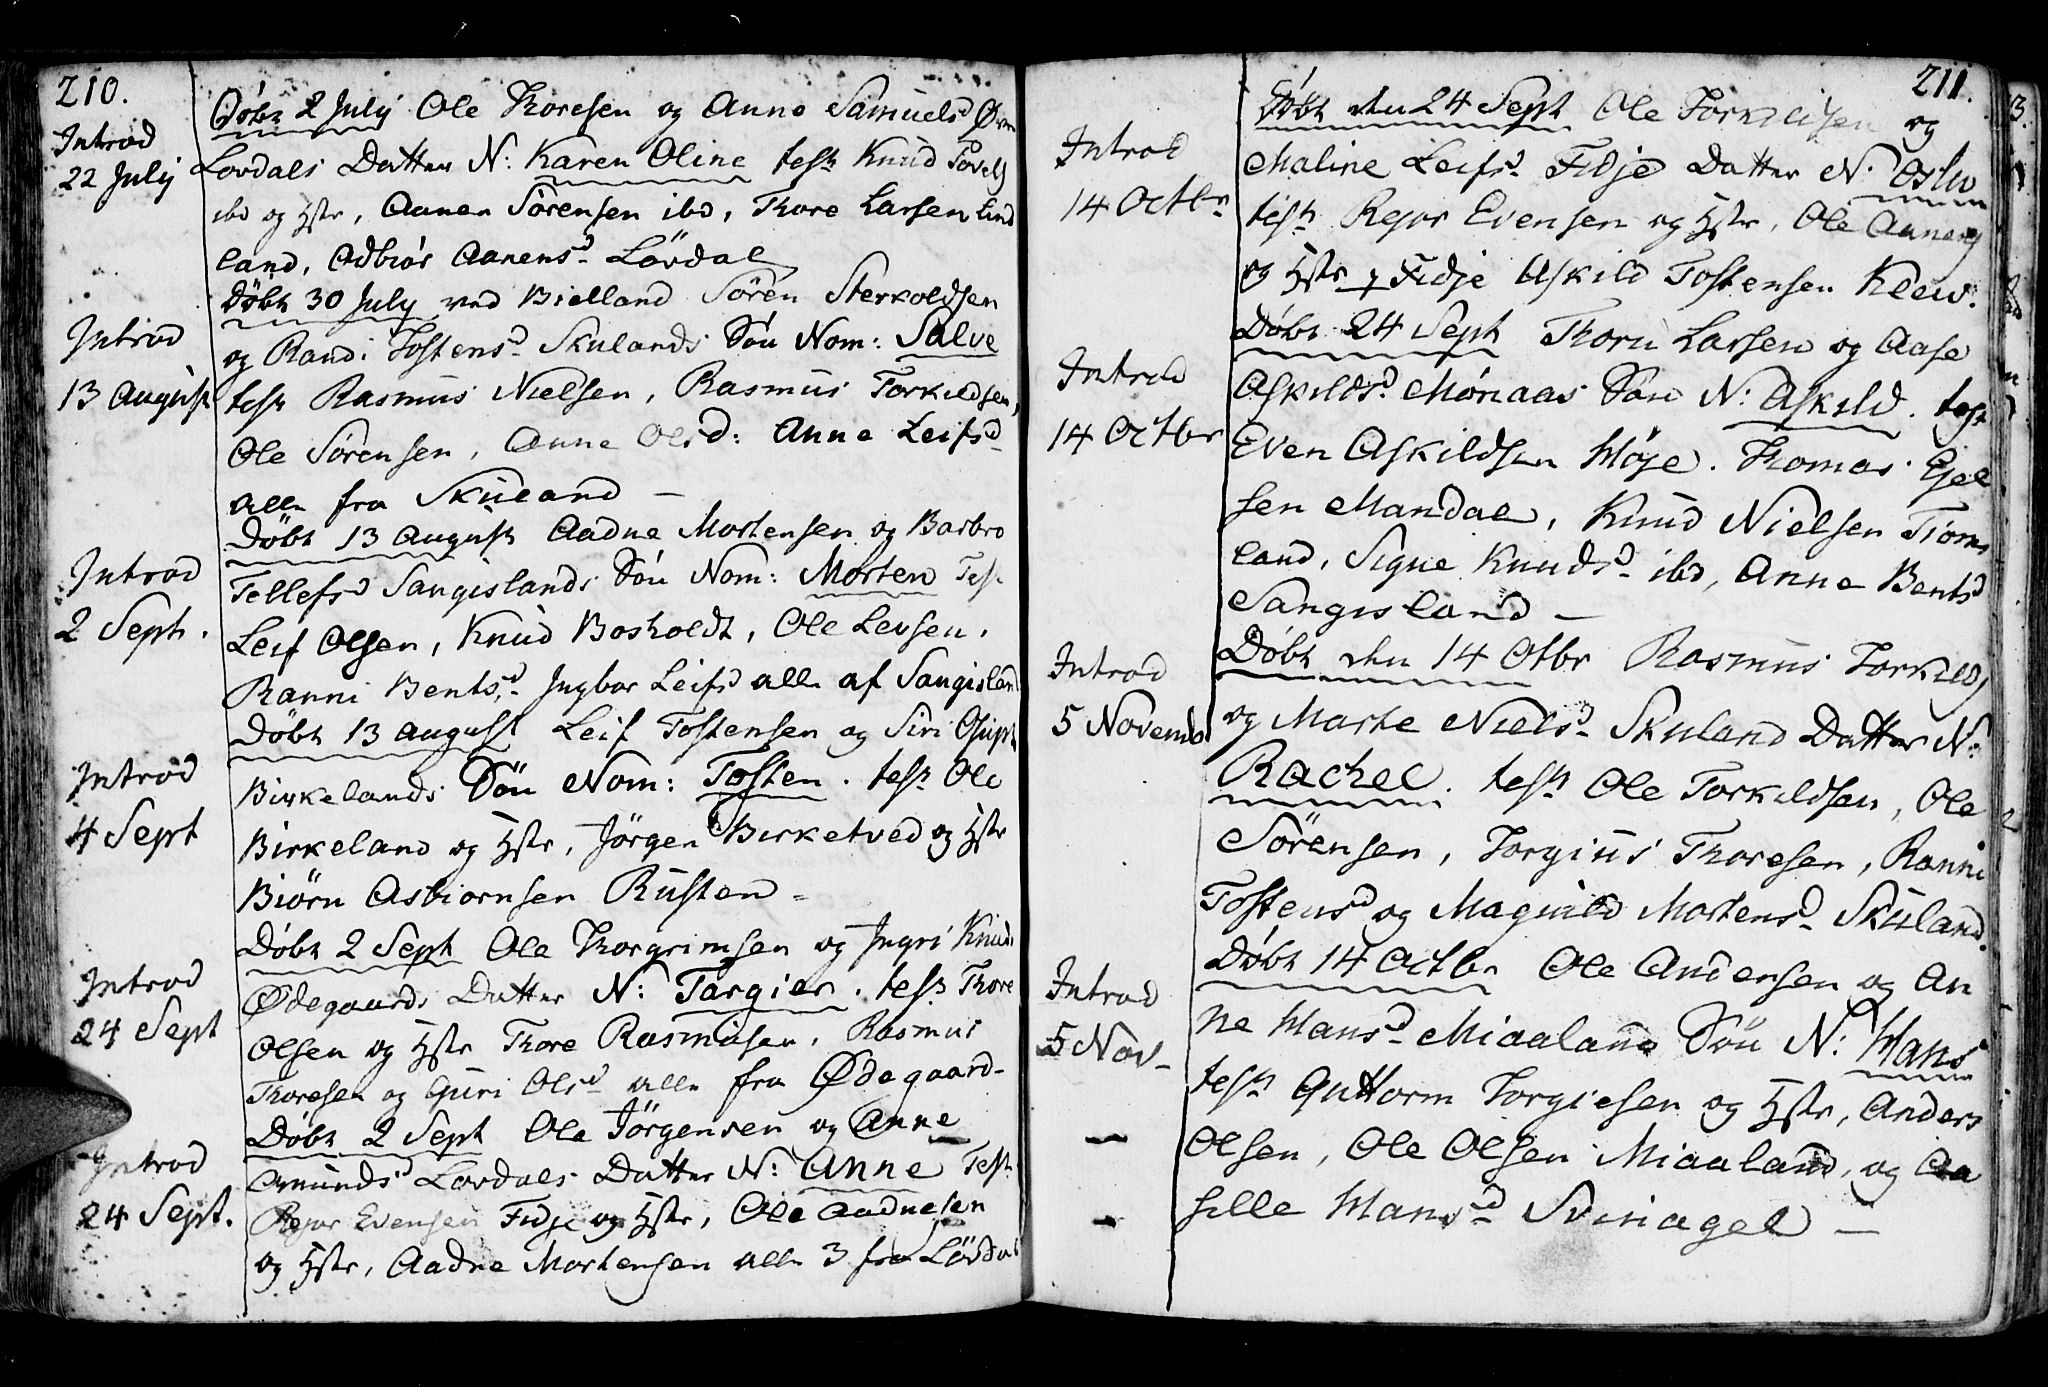 210.
Introd
22 July
Döbt 2 July Ole Thoresen og Anne Samuelsd
Lovdals Datter N: Karen Oline test Knud Povels
ibd og Hstr, Aanen Sörensen ibd, Thore Larsen Lind
land, Adbiör Aanensd Lövdal
Introd
13 August
Döbt 30 July ved Bielland Sören Sterkoldsen
og Randi Tostensd Skulands Sön Nom: Salve
test Rasmus Nielsen, Rasmus Torkildsen,
Ole Sörensen, Anne Olsd: Anne Leifsd
alle fra Skuland —
Introd
2 Sept.
Döbt 13 August Aadne Mortensen og Barbro
Tellefsd Sangislands Sön Nom: Morten Test
Leif Olsen, Knud Bosholdt, Ole Levsen,
Ranni Bentsd, Ingbor Leifsd alle af Sangisland
Introd
4 Sept
Döbt 13 August Leif Tostensen og Siri
Birkelands Sön Nom: Tosten. test Ole
Birkeland og Hstr, Jörgen Birketved og Hstr
Biörn Asbiornsen Rusten =
Introd
24 Sept
Döbt 2 Sept Ole Thorgrimsen og Ingri Knuds
Ødegaards Datter N: Targier. test Thore
Olsen og Hstr Thore Rasmusen, Rasmus
Thoresen og Guri Olsd alle fra Ødegaard-
Introd
24 Sept.
Döbt 2 Sept Ole Jörgensen og Anne
Omundsd Lovdals Datter N: Anne Test
Rejor Evensen Fidje og Hstr, Ole Aadnesen
og Hstr, Aadne Mortensen alle 3 fra Lövdal
211.
Introd
14 Octbr
Döbt den 24 Sept Ole Torkildsen og
Maline Leifsd Fidje Datter N. Oslu
test Rejor Evensen og Hstr, Ole Aanens
og Hstr Fidje Askild Tostensen Kleiv:
Introd
14 Octbr
Döbt 24 Sept Thore Larsen og Aase
Askildsd Mönaas Sön N: Askild. test
Even Askildsen Höje. Thomas Ejel
sen Mandal, Knud Nielsen Tiöms
land, Signe Knudsd ibd, Anne Bentsd
Sangisland —
Introd
5 Novemb
Döbt den 14 Otbr Rasmus Torkilds
og Marte Nielsd Skuland Datter N:
Rachel. test Ole Torkildsen, Ole
Sörensen, Torgius Thoresen, Ranni
Tostensd og Magnild Mortensd Skuland.
Introd
5 Nov-
Döbt 14 Octbr Ole Andersen og An
ne Hansd Miaaland Sön N: Hans
test Guttorm Torgiesen og Hstr, Anders
Olsen, Ole Olsen Miaaland, og Aa
sille Hansd Svinagel —